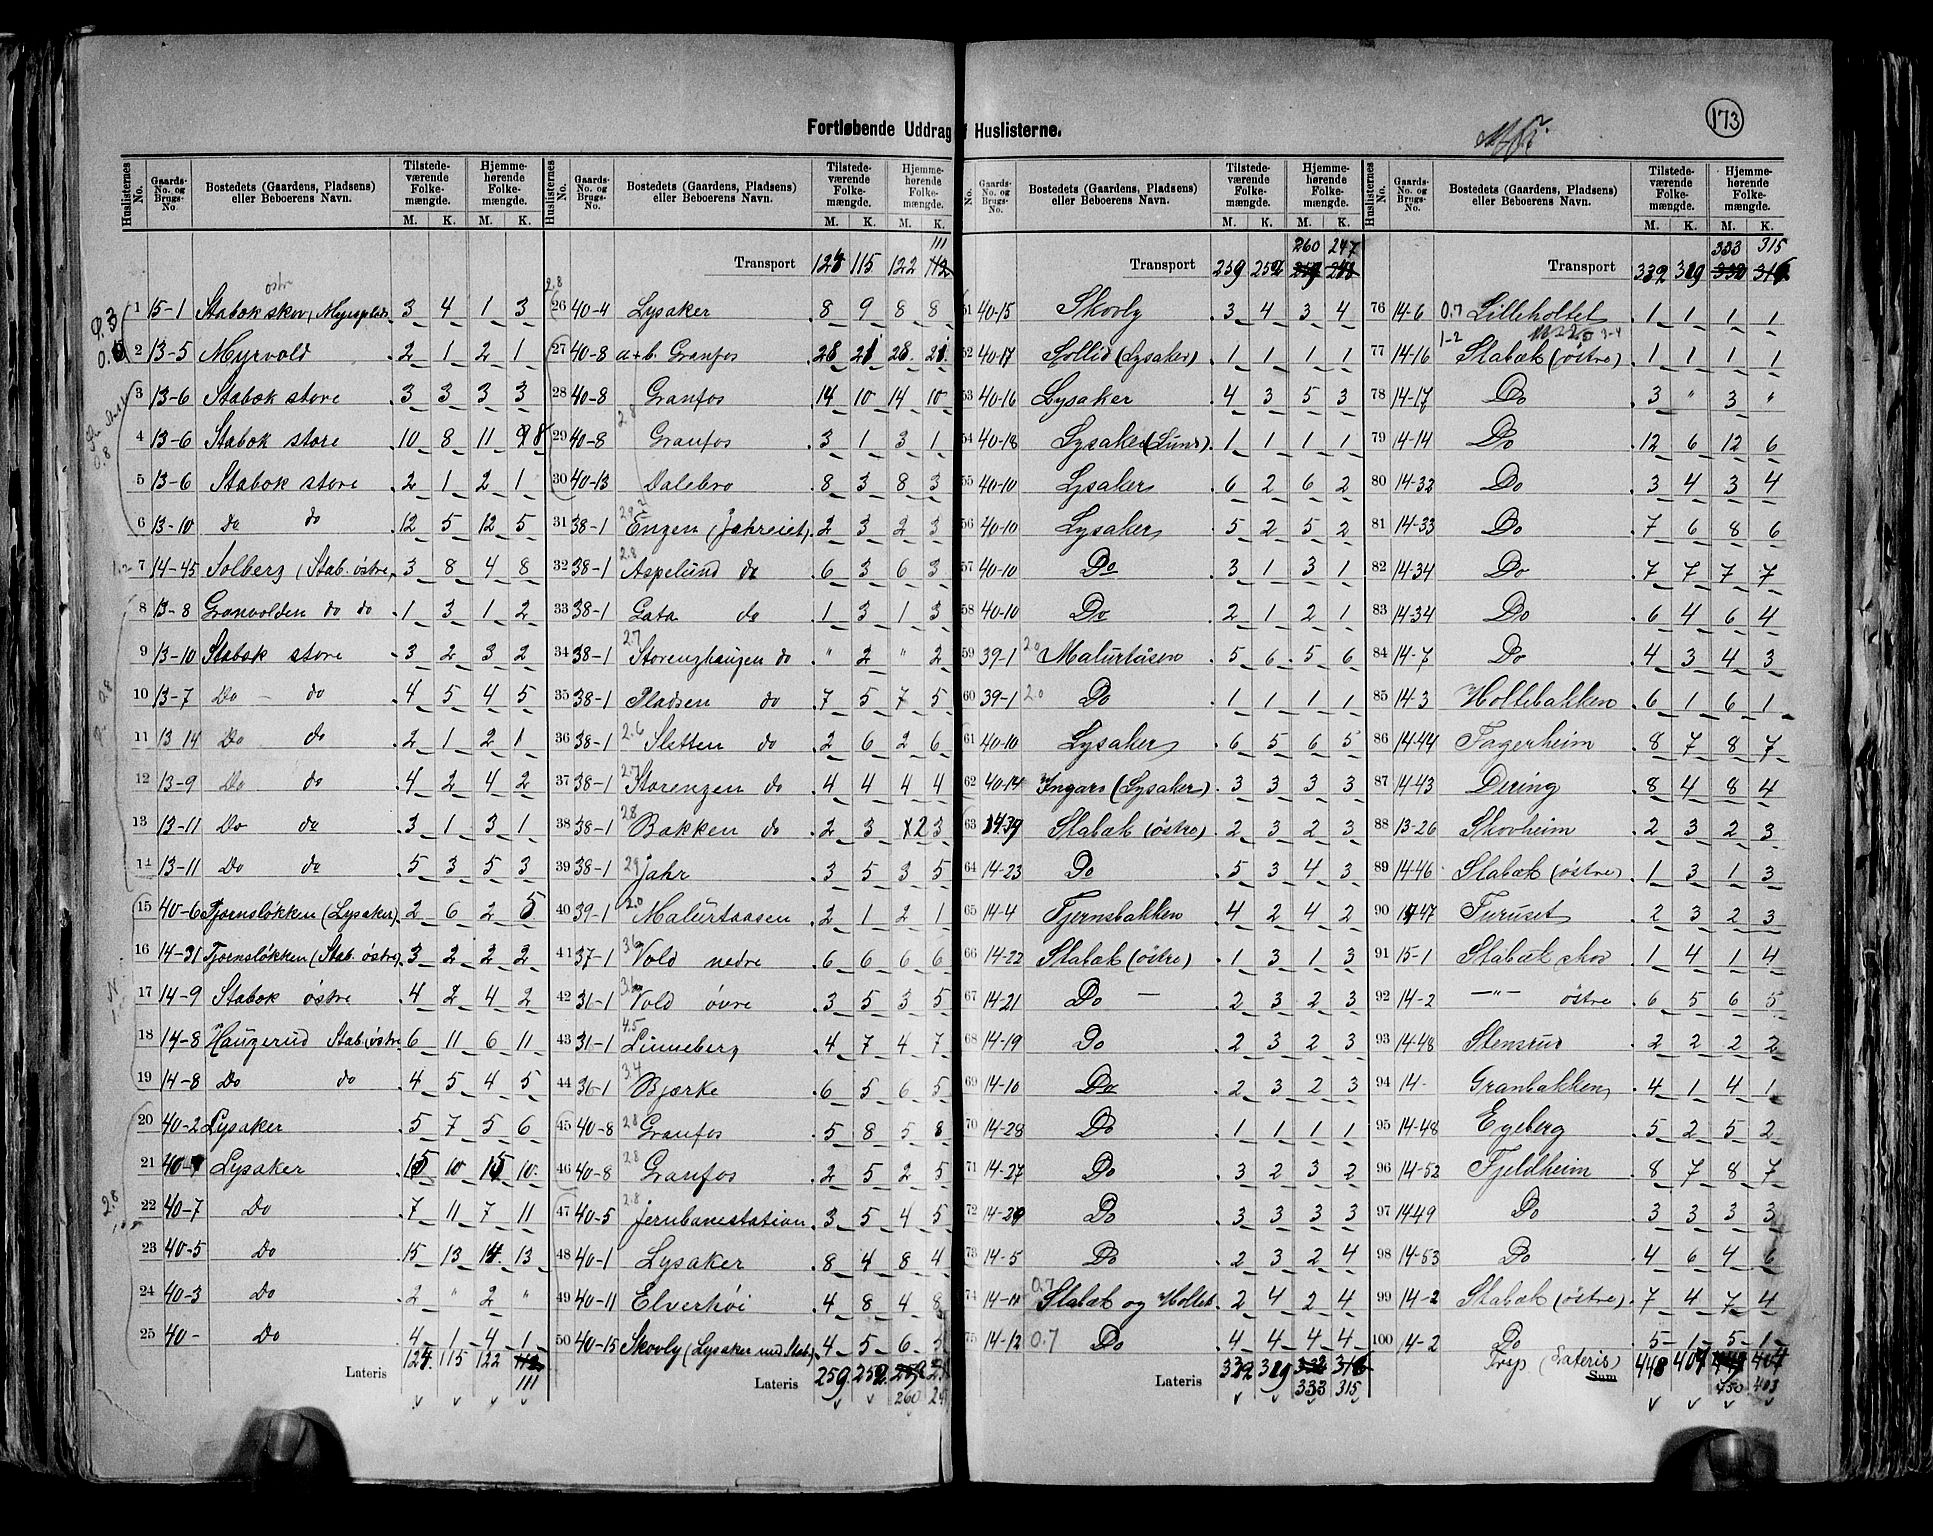 173
Fortløbende Uddrag Huslisterne.
Huslisternes No. | Gaards- No. og Brugs- No. | Bostedets (Gaardens, Pladsens) eller Beboerens Navn. | Tilstede- værende Folke- mængde. M. K. | Hjemme- hørende Folke- mængde. M. K.
1 15-1 Stabæk skov, østre 3 4 1 3
2 13-5 Myrvold 2 1 2 1
3 13-6 Stabæk store 3 3 3 3
4 13-6 Stabæk store 10 8 11 8
5 13-6 Stabæk store 2 1 2 1
6 13-10 do do 12 5 12 5
7 14-45 Solberg (Stab. østre) 3 8 4 8
8 13-8 Granvolden do do 1 3 1 2
9 13-10 Stabæk store 3 2 3 2
10 13-7 Do - do 4 5 4 5
11 13 14 Do do 2 1 2 1
12 13-9 Do do 4 2 4 2
13 13-11 Do do 3 1 3 1
14 13-11 Do do 5 3 5 3
15 40-6 Tjernsløkken (Lysaker) 2 6 2 5
16 14-31 Tjernsløkken (Stab. østre) 3 2 2 2
17 14-9 Stabæk østre 4 2 4 2
18 14-8 Haugerud Stab. østre 6 11 6 11
19 14-8 Do do 4 5 4 5
20 40-2 Lysaker 5 7 5 6
21 Lysaker 15 10 15 10
22 40-7 Do 7 11 7 11
23 40-5 Do 15 13 14 13
24 40-3 Do 2 " 2 "
25 40- Do 4 1 4 1
Lateris 124 115 122 112
111
Huslisternes No. | Gaards- No. og Brugs- No. | Bostedets (Gaardens, Pladsens) eller Beboerens Navn. | Tilstede- værende Folke- mængde. M. K. | Hjemme- hørende Folke- mængde. M. K.
111
Transport 124 115 122 112
26 40-4 Lysaker 8 9 8 8
27 40-8 a+b. Granfos 28 21 28 21
28 40-8 Granfos 14 10 14 10
29 40-8 Granfos 3 1 3 1
30 40-13 Dalebro 8 3 8 3
31 38-1 Engen (Jahreiet) 2 3 2 3
32 38-1 Aspelund do 6 3 6 3
33 38-1 Gata do 1 3 1 3
34 38-1 Storenghaugen do " 2 " 2
35 38-1 Pladsen do 7 5 7 5
36 38-1 Sletten do 2 6 2 6
37 38-1 Storengen do 4 4 4 4
38 38-1 Bakken do 2 3 2 3
39 38-1 Jahr 3 5 3 5
40 39-1 Malurtaasen 2 1 2 1
41 37-1 Vold nedre 6 6 6 6
42 31-1 Vold øvre 3 5 3 5
43 31-1 Linneberg 4 7 4 7
44 36-1 Bjerke 6 5 6 5
45 40-8 Granfos 5 8 5 8
46 40-8 Granfos 2 5 2 5
47 40-5 Jernbanestation 3 5 4 5
48 40-1 Lysaker 8 4 8 4
49 40-11 Elverhøi 4 8 4 8
50 40-15 Skovly (Lysaker med Stab.) 4 5 6 5
Lateris 259 252 259
260
No. | Gaards- No. og Brugs- No. | Bostedets (Gaardens, Pladsens) eller Beboerens Navn. | Tilstede- værende Folke- mængde. M. K. | Hjemme- hørende Folke- mængde. M. K.
260 247
Transport 259 252 259 248
51 40-15 Skovly 3 4 3 4
52 40-17 Sollid (Lysaker) 1 1 1 1
53 40-16 Lysaker 4 3 5 3
54 40-18 Lysaker (Lund) 1 1 1 1
55 40-10 Lysaker 6 2 6 2
56 40-10 Lysaker 5 2 5 2
57 40-10 Do 3 1 3 1
58 40-10 Do 2 1 2 1
59 39-1 2.0 Malurtåsen 5 6 5 6
60 39-1 2.0 Do 1 1 1 1
61 40-10 Lysaker 6 5 6 5
62 40-14 Yngars (Lysaker) 3 3 3 3
63 14-39 Stabæk (østre) 2 3 2 3
64 14-23 Do 5 3 4 3
65 14-4 Tjernsbakken 4 2 4 2
66 14-22 Stabæk (østre) 1 3 1 3
67 14-21 Do - 2 3 2 3
68 14-19 Do 2 3 2 3
69 14-10 Do 2 3 2 3
70 14-28 Do 1 1 1 1
71 14-27 Do 3 2 3 2
72 14-29 Do 3 3 3 3
73 14-5 Do 2 3 2 4
74 14-11 0.7 Stabæk og Holtet 2 4 2 4
75 14-12 0.7 Do 4 4 4 4
Lateris 332 319 332 316
333 315
Huslisternes No. | Gaards- No. og Brugs- No. | Bostedets (Gaardens, Pladsens) eller Beboerens Navn. | Tilstede- værende Folke- mængde. M. K. | Hjemme- hørende Folke- mængde. M. K.
333 315
Transport 332 319 332 316
76 14-6 0.7 Lilleholtet 1 1 1 1
77 14-16 1-2 Stabæk (østre) 1 1 1 1
78 14-17 Do 3 " 3 "
79 14-14 Do 12 6 12 6
80 14-32 Do 3 4 3 4
81 14-33 Do 7 6 8 6
82 14-34 Do 7 7 7 7
83 14-34 Do 6 4 6 4
84 14-7 Do 4 3 4 3
85 14-3 Holtebakken 6 1 6 1
86 14-44 Fagerheim 8 7 8 7
87 14-43 Dering 8 4 8 4
88 13-26 Skovheim 2 3 2 3
89 14-46 Stabæk (østre) 1 3 1 3
90 14-47 Furuset 2 3 2 3
91 15-1 Stabæk skov 1 4 1 4
92 14-2 —"— østre 6 5 6 5
93 14-48 Stensrud 2 2 2 2
94 14- Granbakken 4 1 4 1
95 14-48 Egeberg 5 2 5 2
96 14-52 Fjeldheim 8 7 8 7
97 14 49 Do 3 3 3 3
98 14-53 Do 4 6 4 6
99 14-2 Stabæk (østre) 7 4 7 4
100 14-2 Do 5 1 5 1
(Lateris) Sum 448 407 449 404
450 403